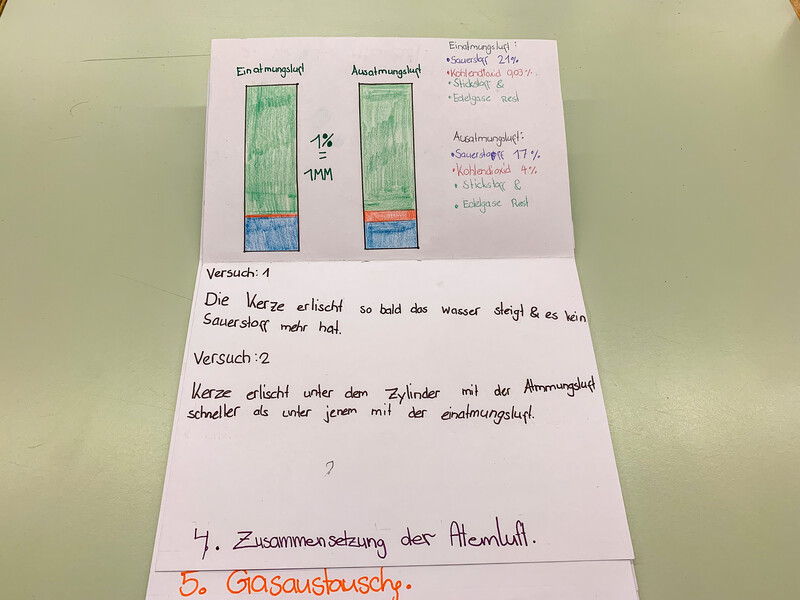 Einatmungsluft
Ausatmungsluft
1%
=
1MM
Einatmungsluft:
• Sauerstoff 21%
• Kohlendioxid 0,03%
• Stickstoff &
• Edelgase Rest
Ausatmungsluft:
• Sauerstoff 17%
• Kohlendioxid 4%
• Stickstoff &
• Edelgase Rest
Versuch: 1
Die Kerze erlischt so bald das wasser steigt & es kein
Sauerstoff mehr hat.
Versuch: 2
Kerze erlischt unter dem Zylinder mit der
schneller als unter jenem mit der einatmungsluft.
4. Zusammensetzung der Atemluft.
5. Gasaustausch.